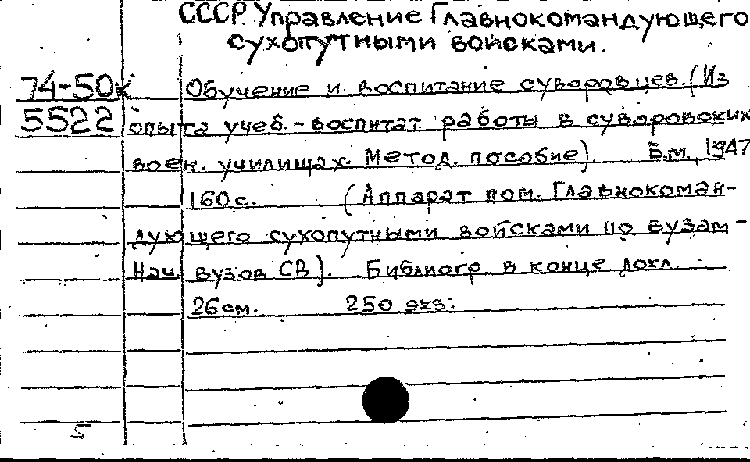 СССР. Управление Главнокомандующего
сухопутными войсками.
74-50к Обучение и воспитание суворовцев. (Из
5522 опыта учеб.-воспитат работы в суворовских
воен. училищах. Метод. пособие). Б.м., 1947
160с. (Аппарат пом. Главнокоман-
дующего сухопутными войсками по вузам-
Нач. вузов СВ). Библиогр в конце докл.
26см. 250 экз.